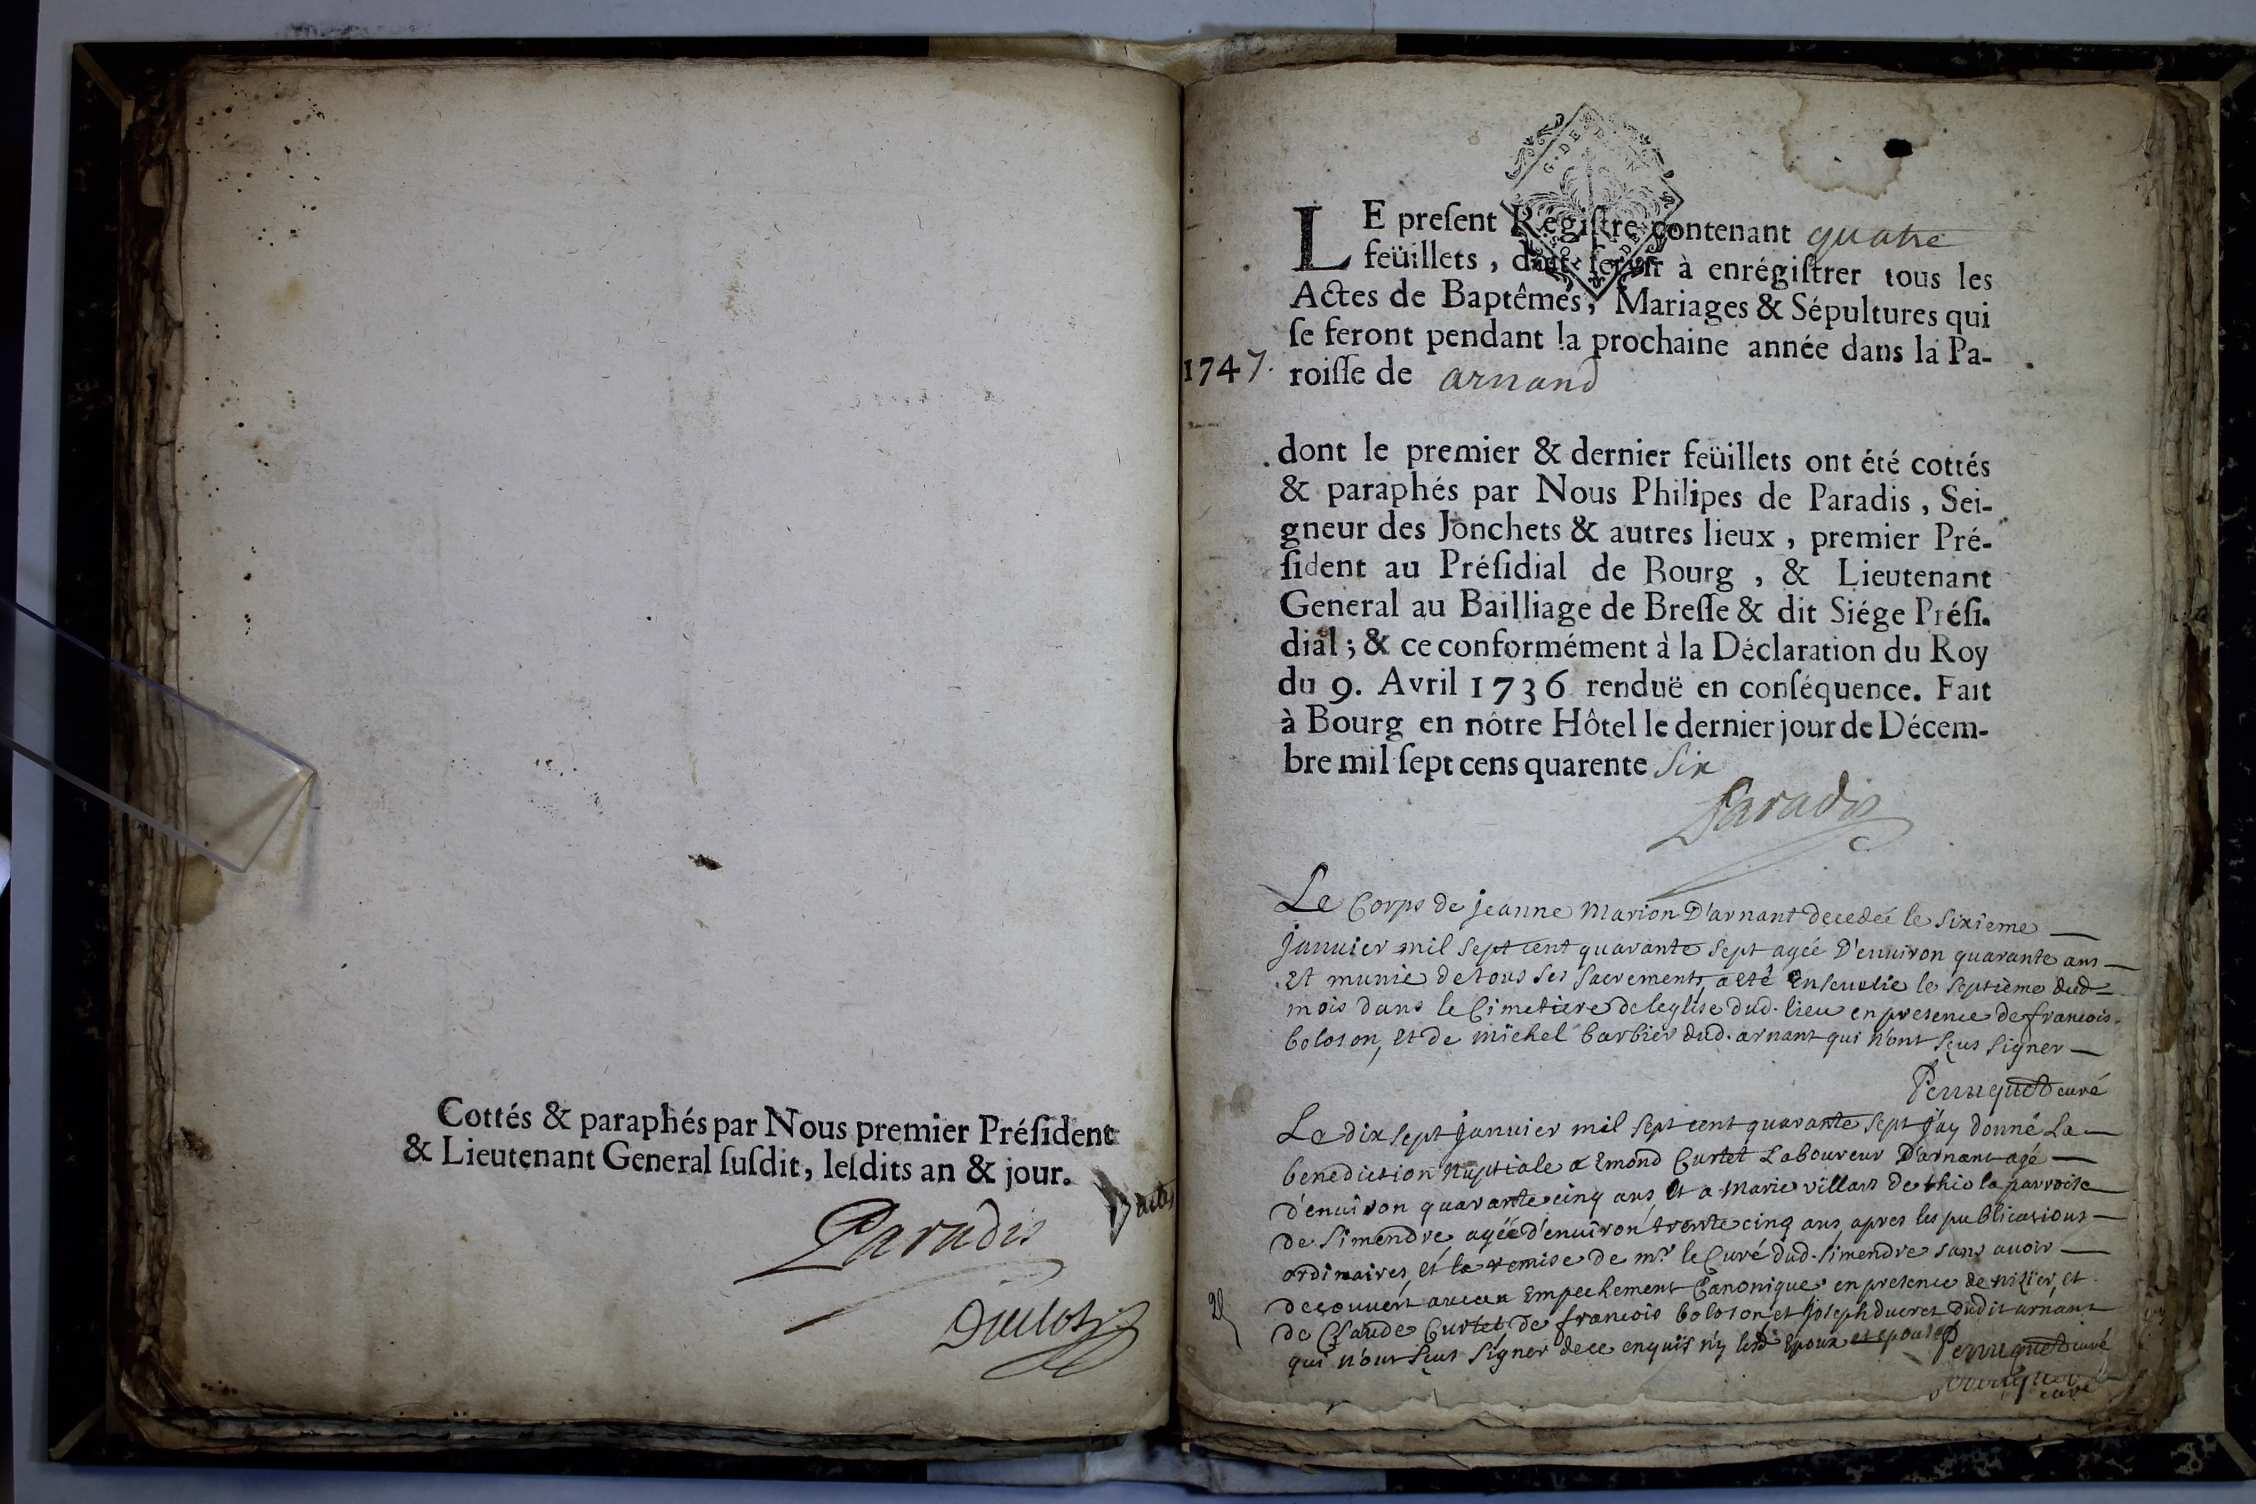 Cottés & paraphés par Nous premier Président
& Lieutenant General suſdit, leſdits an & jour.
Paradis
LE preſent Régiſtre contenant quatre
feüillets, doit ſervir à enrégiſtrer tous les
Actes de Baptêmes, Mariages & Sépultures qui
ſe feront pendant la prochaine année dans la Pa-
1747. roiſſe de arnand
dont le premier & dernier feüillets ont été cottés
& paraphés par Nous Philipes de Paradis, Sei-
gneur des Jonchets & autres lieux, premier Pré-
ſident au Préſidial de Bourg, & Lieutenant
General au Bailliage de Breſſe & dit Siége Préſi-
dial; & ce conformément à la Déclaration du Roy
du 9. Avril 1736 renduë en conſéquence. Fait
à Bourg en nôtre Hôtel le dernier jour de Décem-
bre mil ſept cens quarente Six
Paradis
Le Corps de jeanne Marion D'arnant decedeé le Sixieme
janvier mil Sept cent quarante Sept ageé D'environ quarante ans
et munie de tous Ses Sacrements, a eté Ensevelie le Septieme dud
mois dans le Cimetiere de leglise dud. lieu en presence de francois
boloson, et de michel barbier dud. arnant qui n'ont Sçus Signer
Perruquet curé
Le dix Sept janvier mil Sept cent quarante Sept j'ay donné La
benediction Nuptiale a Emond Curtet Laboureur D'arnant agé
d'environ quarante cinq ans, et a Marie villars de thiola parroise
de Simendre, ageé d'environ trente cinq ans, apres les publications
ordinaires, et la remise de mr. le Curé dud. Simendre sans avoir
decouvert aucun Empechement Canonique, en presence de nizier, et
de Claude Curtet de francois boloson et joseph ducret dudit arnant
qui n'ont Sçus Signer de ce enquis n'y lesd Epoux et epouse
Perruquet curé
Perruquet
curé